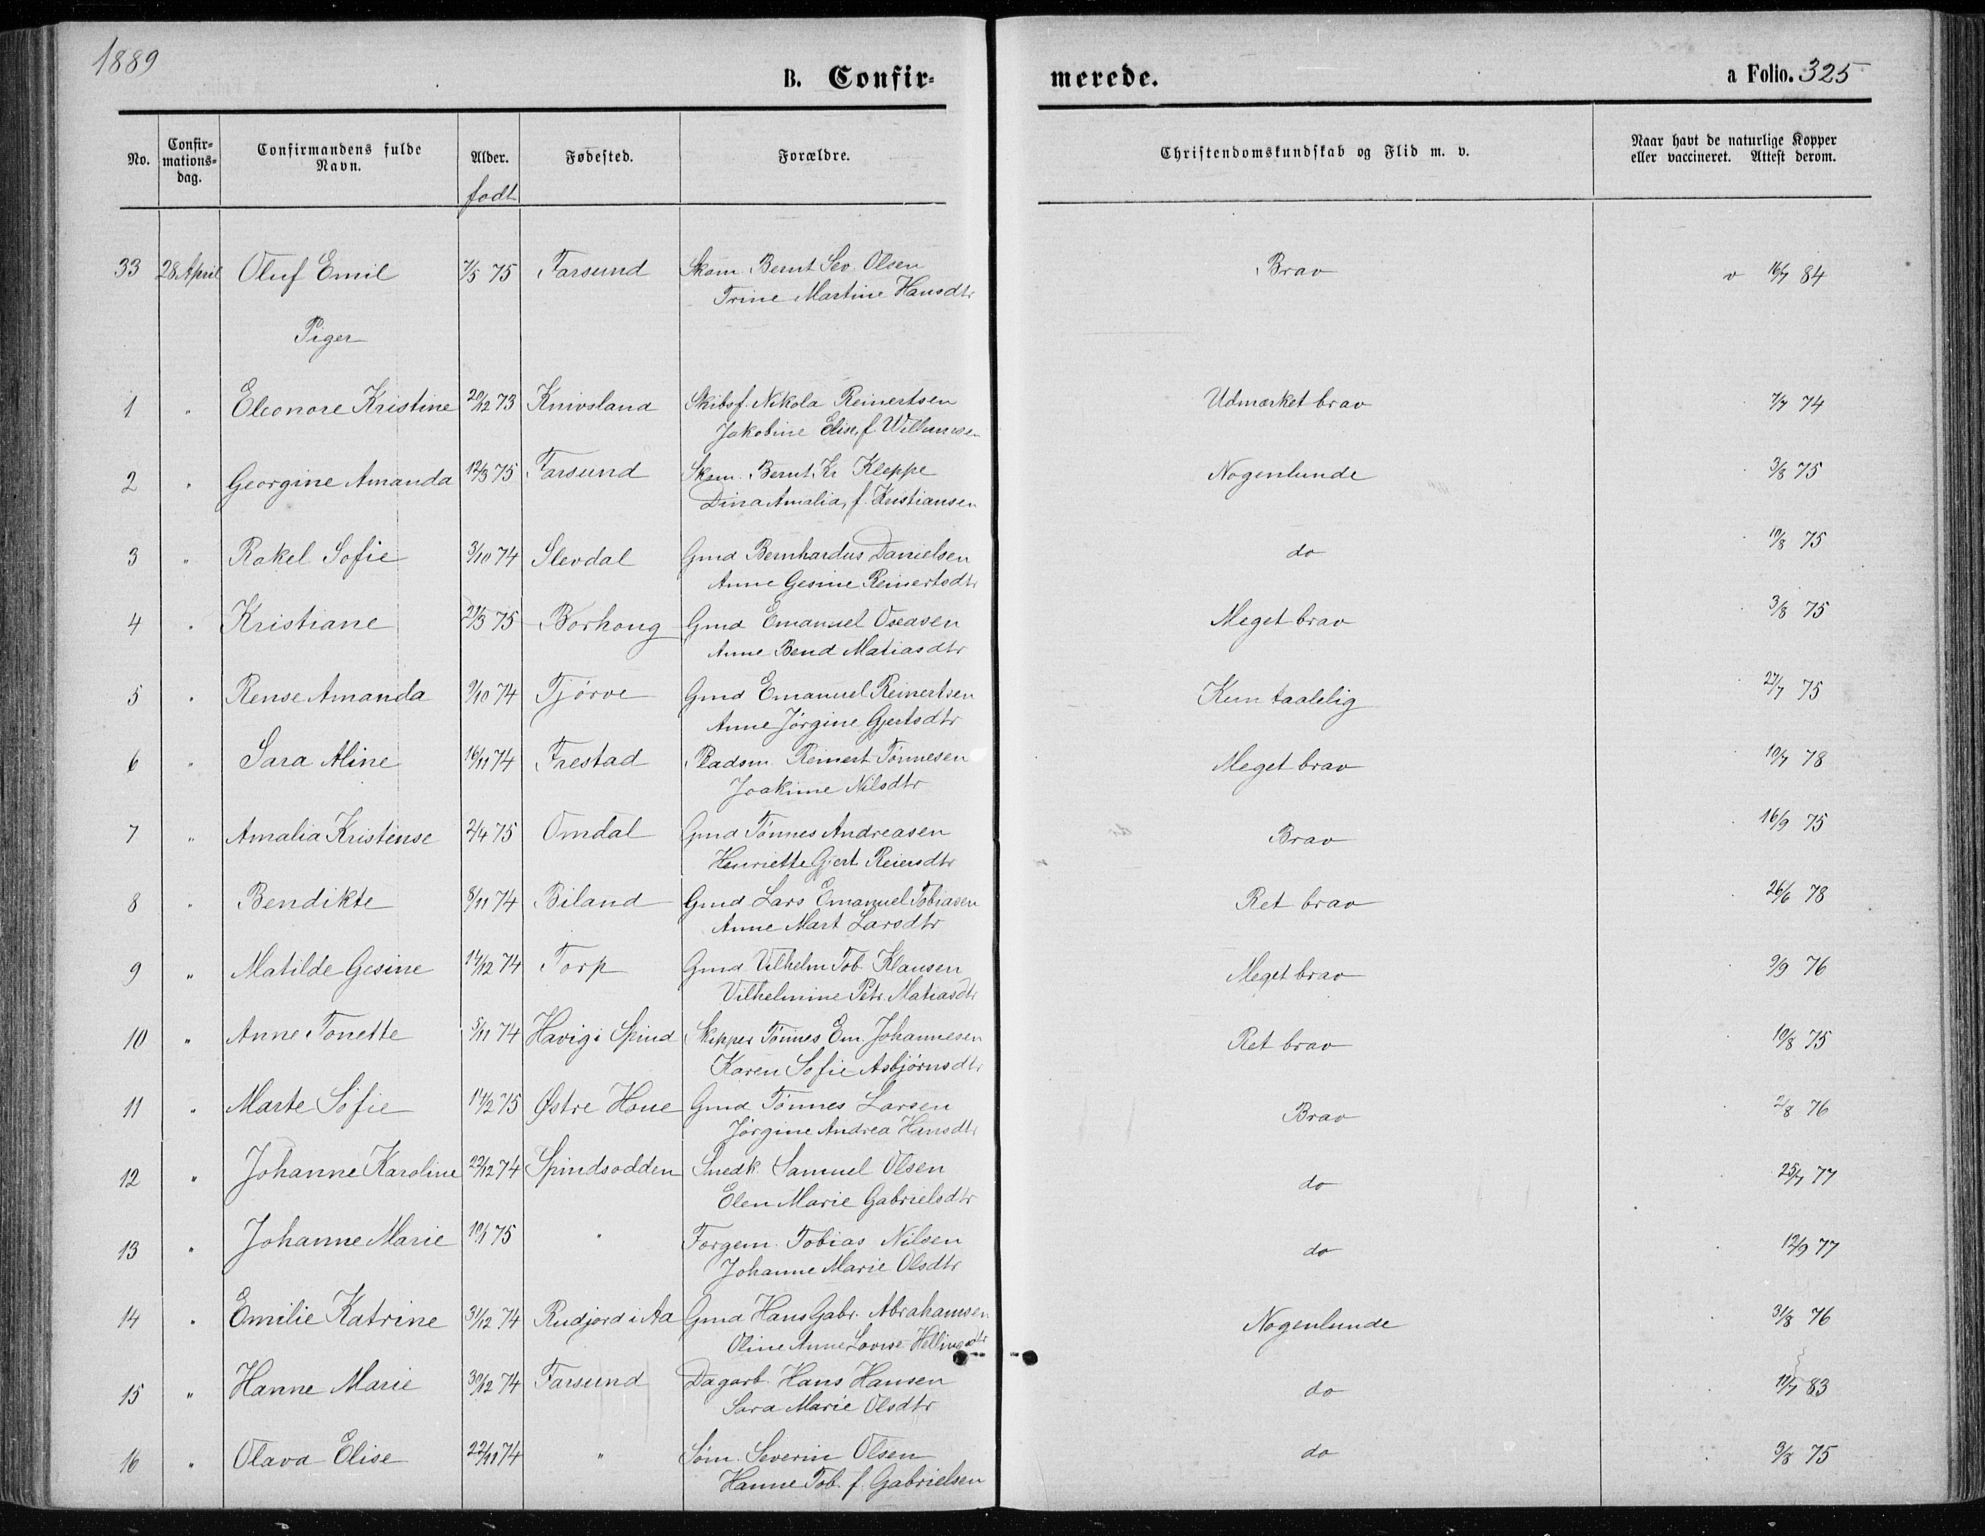 1889
B. Confir-
merede.
a Folio. 325
No.
Confir-
mations-
dag.
Confirmandens fulde
Navn.
Alder.
født
Fødested.
Forældre.
Christendomskundskab og Flid m. v.
Naar havt de naturlige Kopper
eller vaccineret. Attest derom.
33 28 April Oluf Emil 7/5 75 Farsund Skom. Bernt Sev. Olsen Brav v 16/7 84
Trine Martine Hansdtr
Piger
1 " Eleonore Kristine 20/12 73 Knivsland Skibsf. Nikola Reinertsen Udmærket brav 7/7 74
Jakobine Elise, f. Willumsen
2 " Georgine Amanda 12/3 75 Farsund Skom. Bernt Kr Kleppe Nogenlunde 3/8 75
Dina Amalia, f. Kristiansen
3 " Rakel Sofie 3/10 74 Slevdal Gmd Bernhardus Danielsen do 10/8 75
Anne Gesine Reinertsdtr
4 " Kristiane 21/3 75 Borhoug Gmd Emanuel Oseasen Meget brav 3/8 75
Anne Bend Matiasdtr
5 " Rense Amanda 9/10 74 Tjørve Gmd Emanuel Reinertsen Kun taalelig 27/7 75
Anne Jørgine Gjertsdtr
6 " Sara Aline 16/11 74 Frestad Pladsm. Reinert Tønnesen Meget brav 10/7 78
Joakime Nilsdtr
7 " Amalia Kristense 2/4 75 Omdal Gmd Tønnes Andreasen Brav 16/9 75
Henriette Gjert Reiersdtr
8 " Bendikte 8/11 74 Biland Gmd Lars Emanuel Tobiasen Ret brav 26/6 78
Anne Mart Larsdtr
9 " Matilde Gesine 14/12 74 Torp Gmd Vilhelm Tob Klausen Meget brav 9/9 76
Vilhelmine Petr. Matiasdtr
10 " Anne Tonette 5/11 74 Havig i Spind Skipper Tønnes Em. Johannesen Ret brav 10/8 75
Karen Sofie Asbjørnsdtr
11 " Marte Sofie 14/2 75 Østre Houe Gmd Tønnes Larsen Brav 2/8 76
Jørgine Andrea Hansdtr
12 " Johanne Karoline 22/12 74 Spindsodden Snedk. Samuel Olsen do 25/7 77
Elen Marie Gabrielsdtr
13 " Johanne Marie 10/1 75 " Forgem. Tobias Nilsen do 12/9 77
Johanne Marie Olsdtr
14 " Emilie Katrine 31/12 74 Rudjord i Aa Gmd Hans Gabr. Abrahamsen Nogenlunde 31/8 76
Oline Anne Lovise Hellingsdtr
15 " Hanne Marie 30/12 74 Farsund Dagarb. Hans Hansen do 10/7 83
Sara Marie Olsdtr
16 " Olava Elise 22/11 74 " Søm. Severin Olsen do 3/8 75
Hanne Tob. f. Gabrielsen